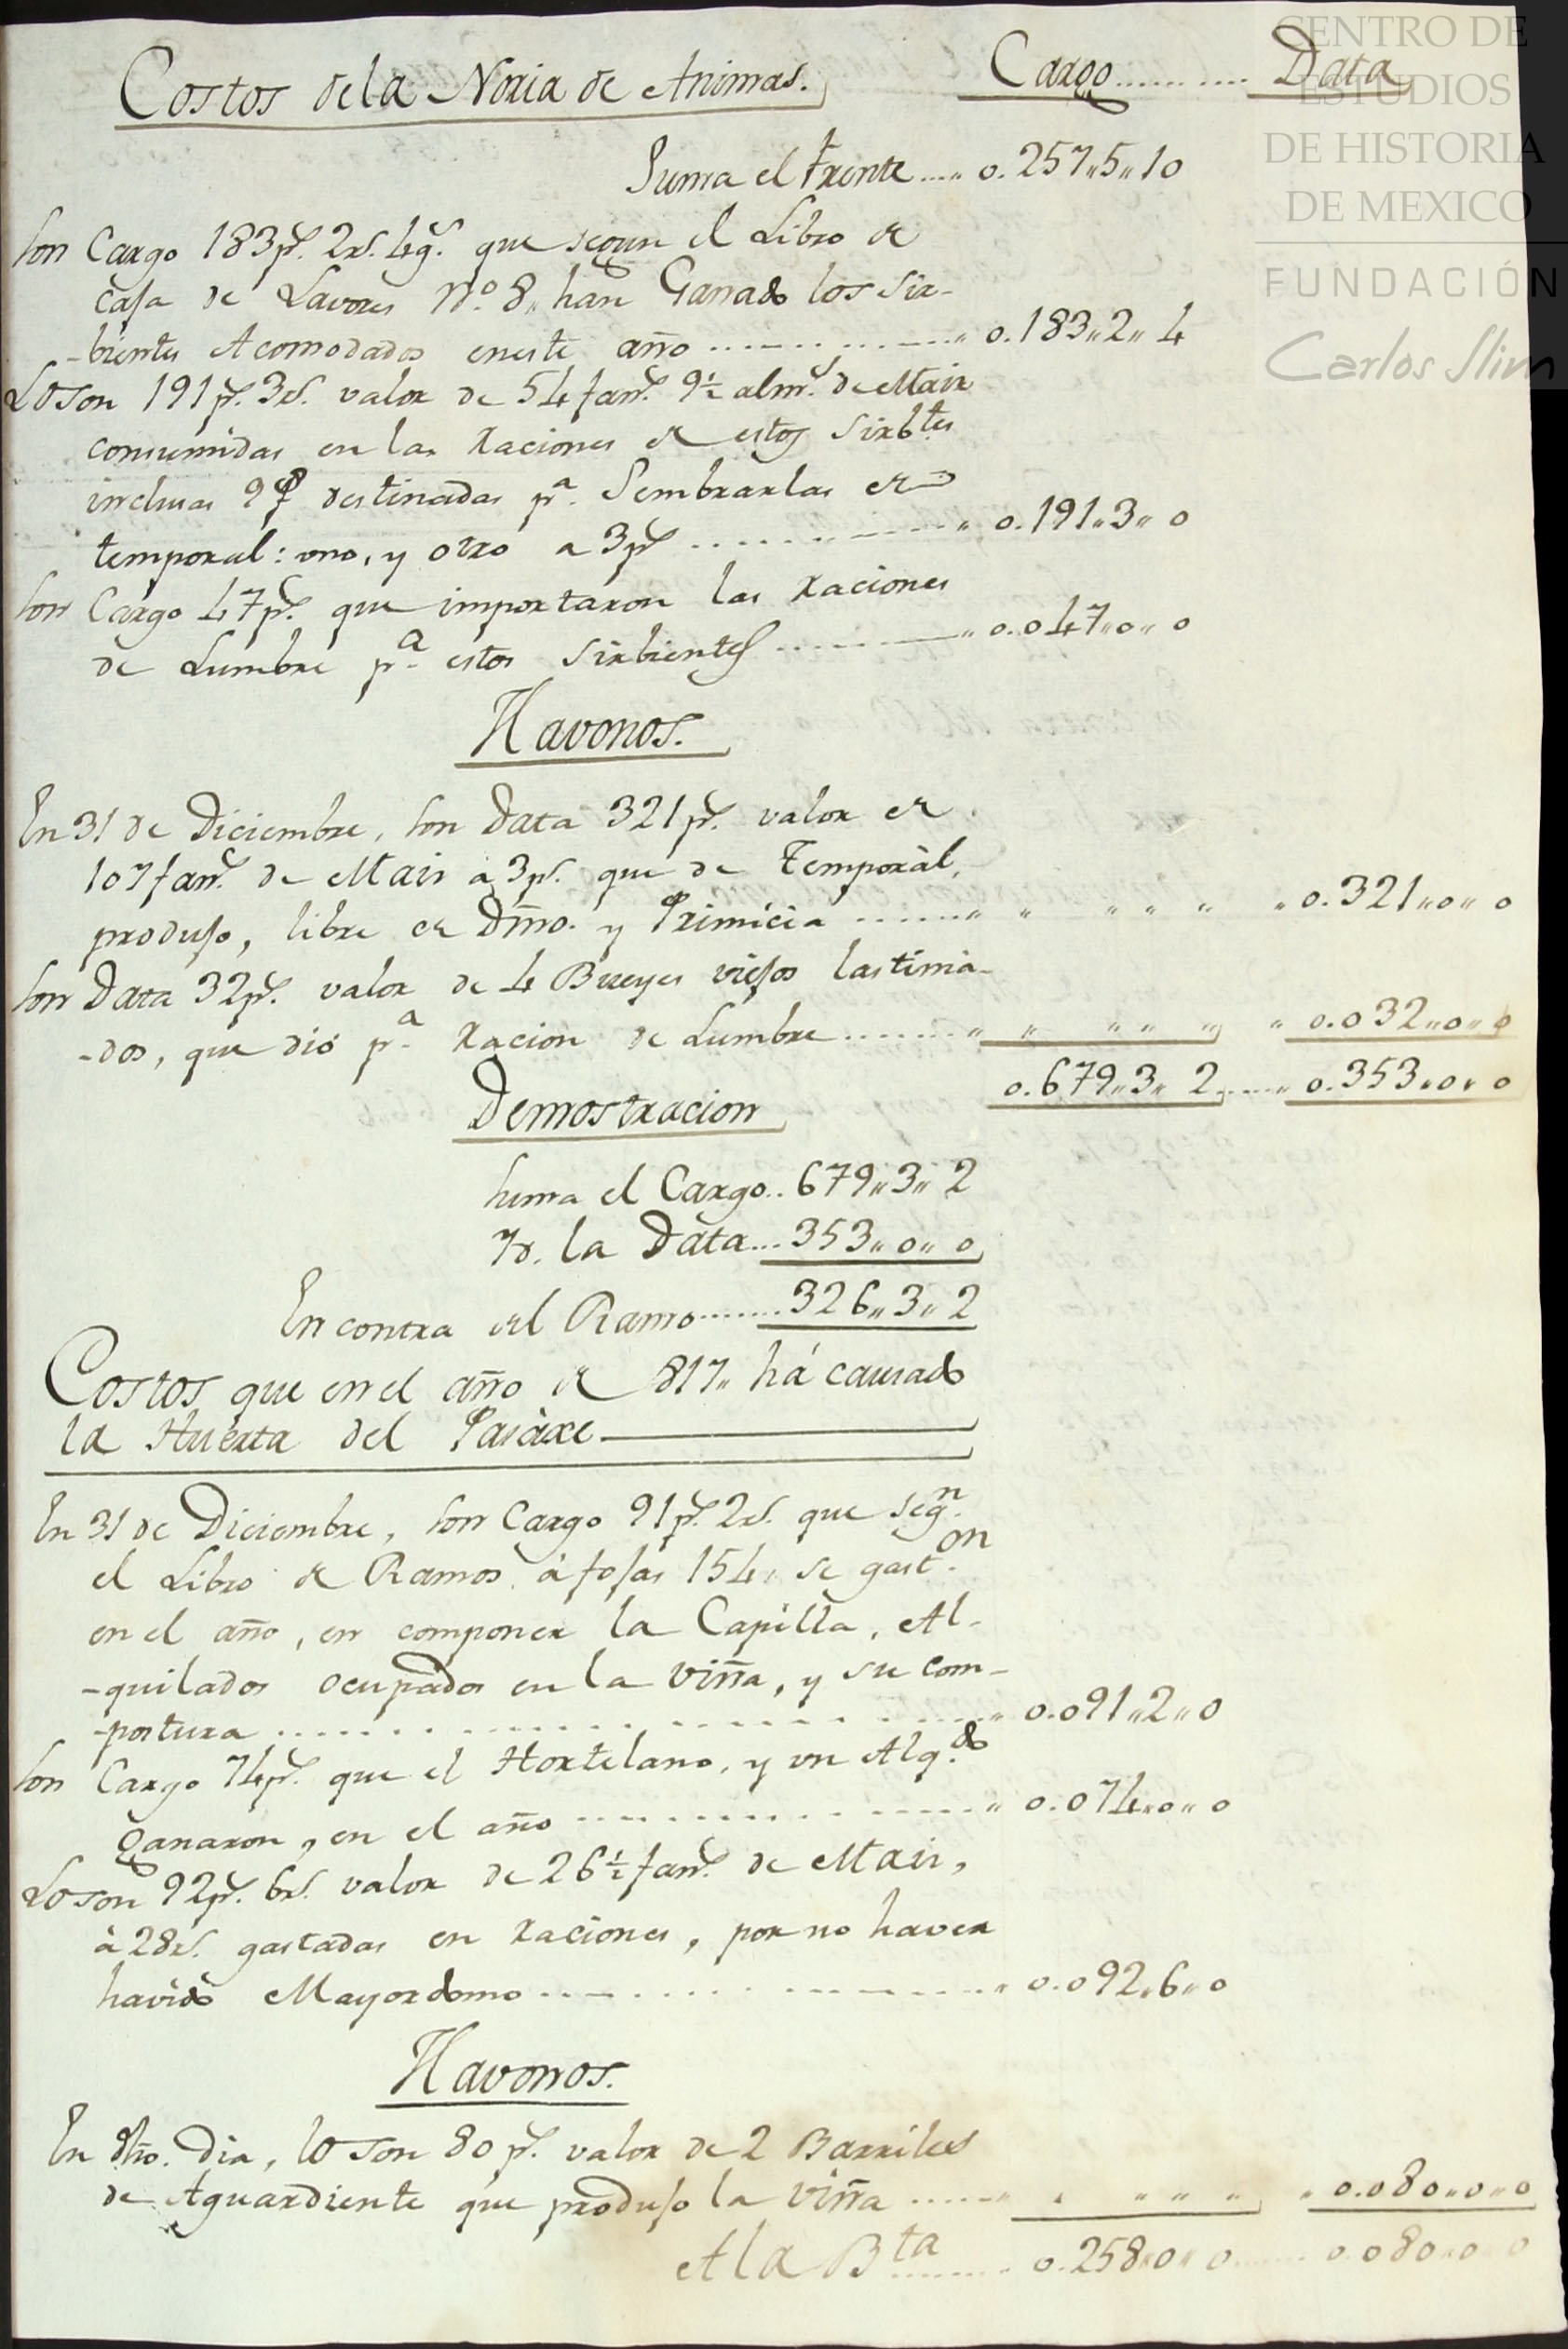 Costos dela Noria de Animas. Cargo.......... Data
Suma el Frente....,, 0.257,,5,,10
Son Cargo 183p.s 2r.s 4g.s que segun el Libro de
casa de Lavores N.o 8,, han Ganado los Sir-
-bientes Acomodados eneste año ..............,, 0.183,,2,,4
Lo son 191p.s 3r.s valor de 54 fan.s 9½ alm.s de Mais
consumidas en las Raciones de estos Sirb.tes
inclusas 9 f destinadas p.a Sembrarlas de
temporal: uno, y otro a 3p.s ..............,, 0.191,,3,,0
Son Cargo 47p.s que importaron las Raciones
de Lumbre p.a estos Sirbientes ..............,, 0.047,,0,,0
Havonos.
En 31 de Diciembre, son Data 321p.s valor de
107 fan.s de Mais a 3p.s que de Temporàl,
produjo, libre de Dmo. y Primicia .......,, ,, ,, ,, ,, ,, 0.321,,0,,0
Son Data 32p.s valor de 4 Bueyes viejos lastima-
-dos, que dió p.a Racion de Lumbre ........,, ,, ,, ,, ,, ,, 0.032,,0,,0
0.679,,3,,2......,, 0.353,,0,,0
Demostracion
Suma el Cargo.. 679,,3,,2
Yd. la Data... 353,,0,,0
En contra del Ramo....... 326,,3,,2
Costos que en el año de 817,, há causado
la Huerta del Paràxe
En 31 de Diciembre, son Cargo 91p.s 2r.s que seg.n
el Libro de Ramos á fojas 154, se gast.on
en el año, en componer la Capilla, Al-
-quilados ocupados en la Viña, y su com-
-postura ..............,, 0.091,,2,,0
Son Cargo 74p.s que el Hortelano, y un Alq.do
ganaron, en el año ..............,, 0.074,,0,,0
Lo son 92p.s 6r.s valor de 26½ fan.s de Mais,
à 28r.s gastadas en Raciones, por no haver
havido Mayordomo ..............,, 0.092,,6,,0
Havonos.
En dho. Dia, lo son 80 p.s valor de 2 Barriles
de Aguardiente que produjo la Viña ......,, ,, ,, ,, ,, ,, 0.080,,0,,0
A la B.ta ........ 0.258,,0,,0 ........ 0.080,,0,,0
CENTRO DE
ESTUDIOS
DE HISTORIA
DE MEXICO
FUNDACIÓN
Carlos Slim